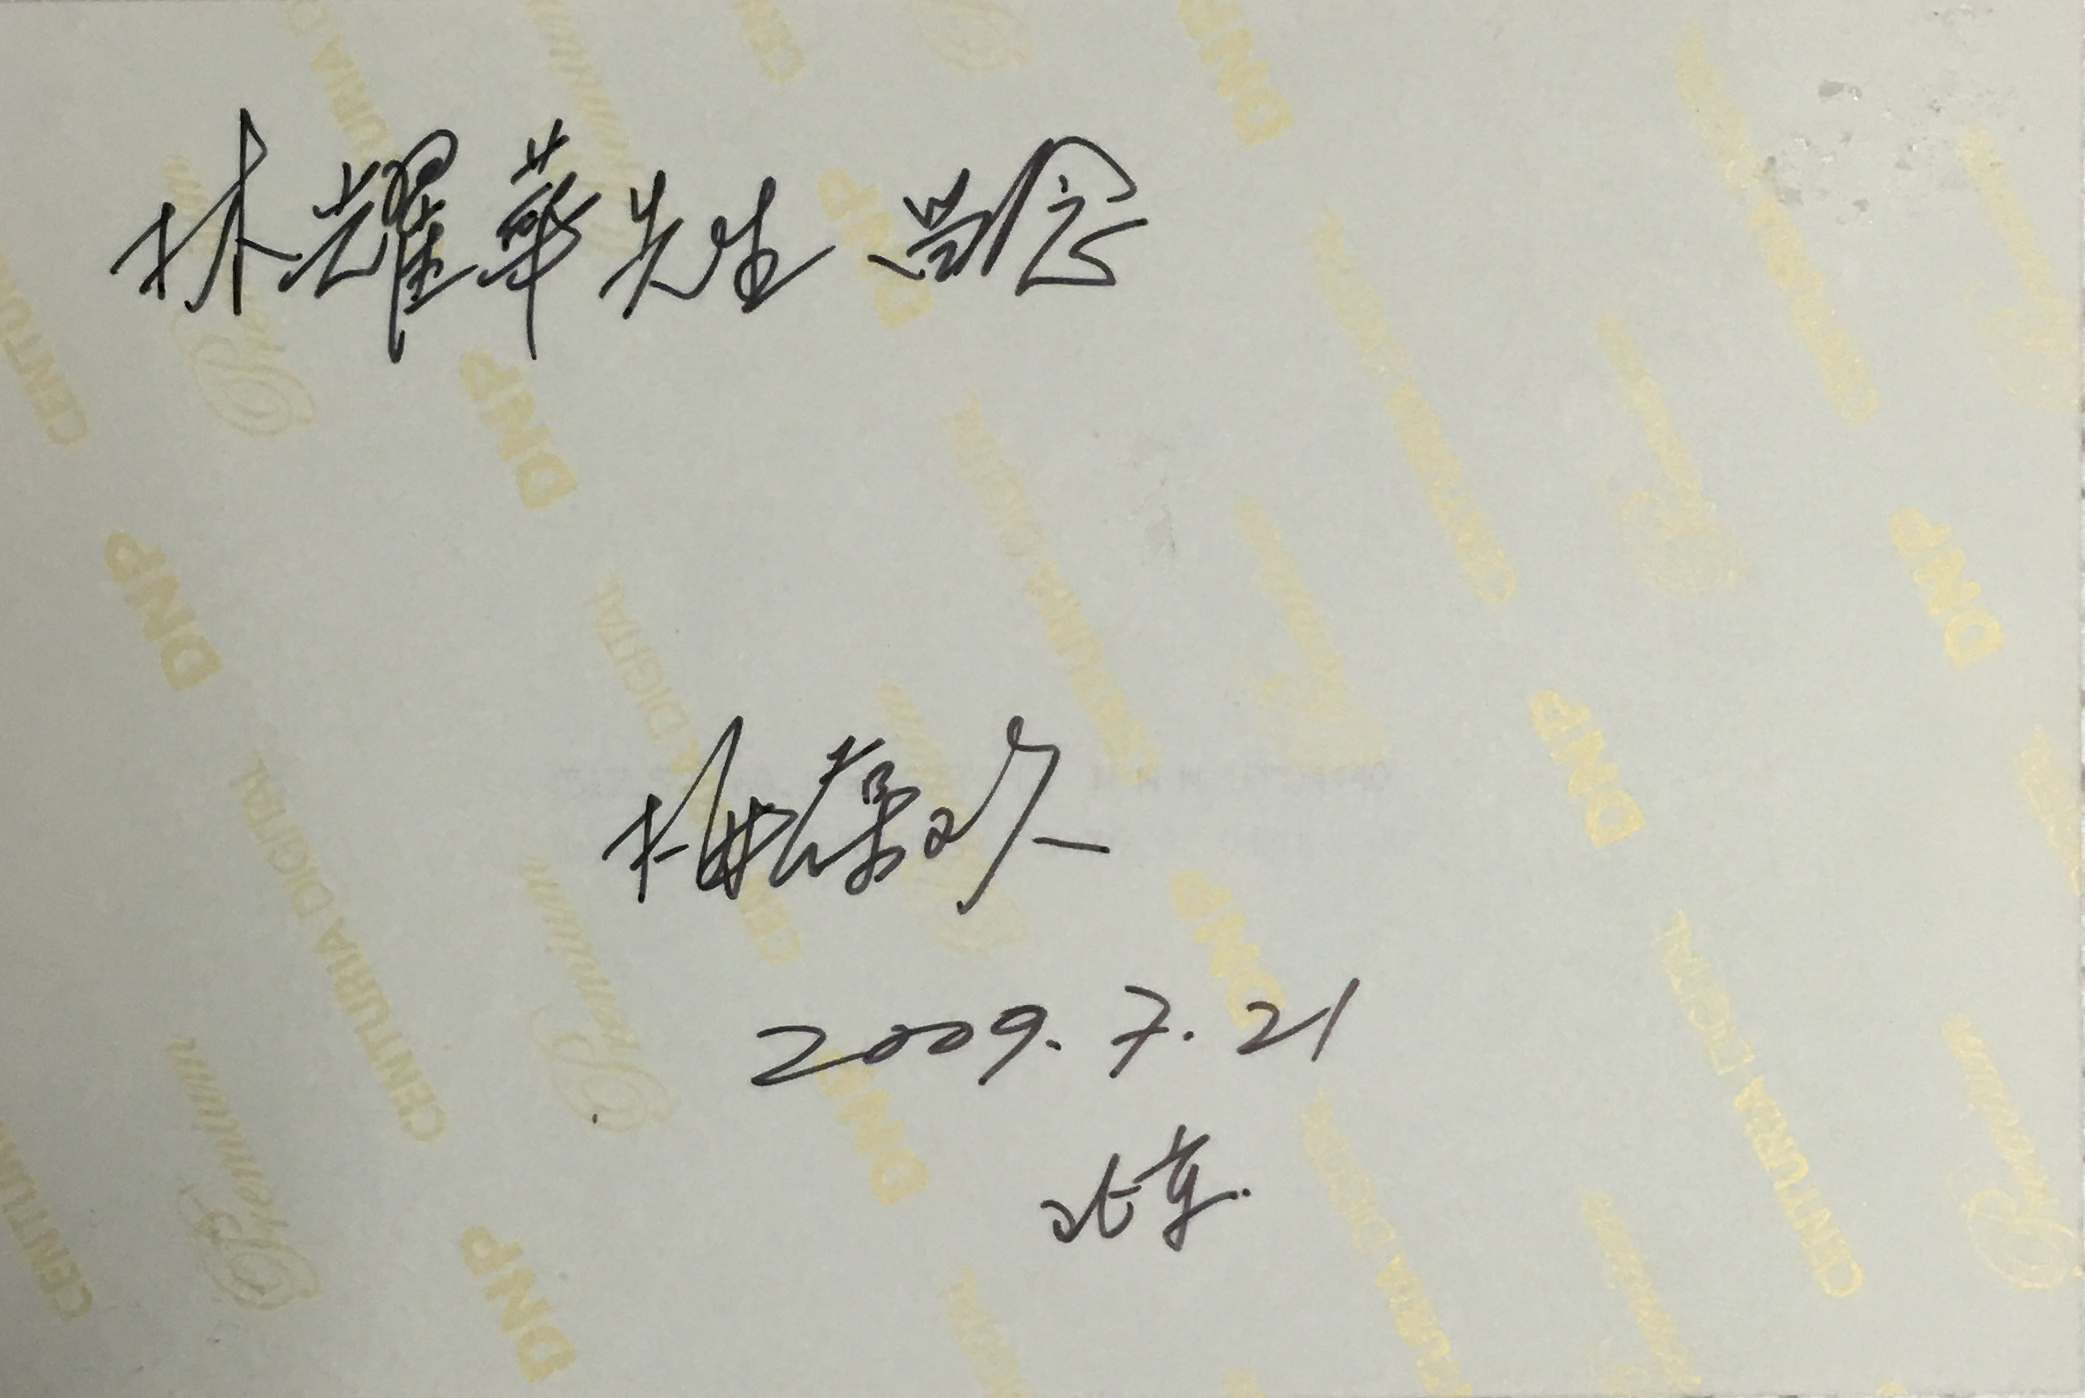 林耀華先生 留念
梅葆玖
2009.7.21
北京.
DNP
CENTURIA DIGITAL
Premium